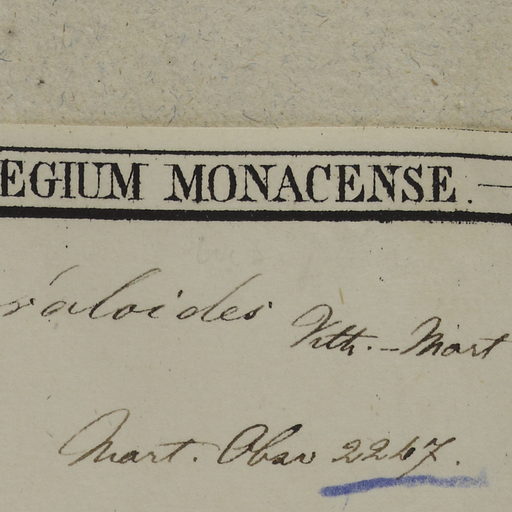 EGIUM MONACENSE.
raloides Vitt.-Mart
Mart. Obsv 2247.